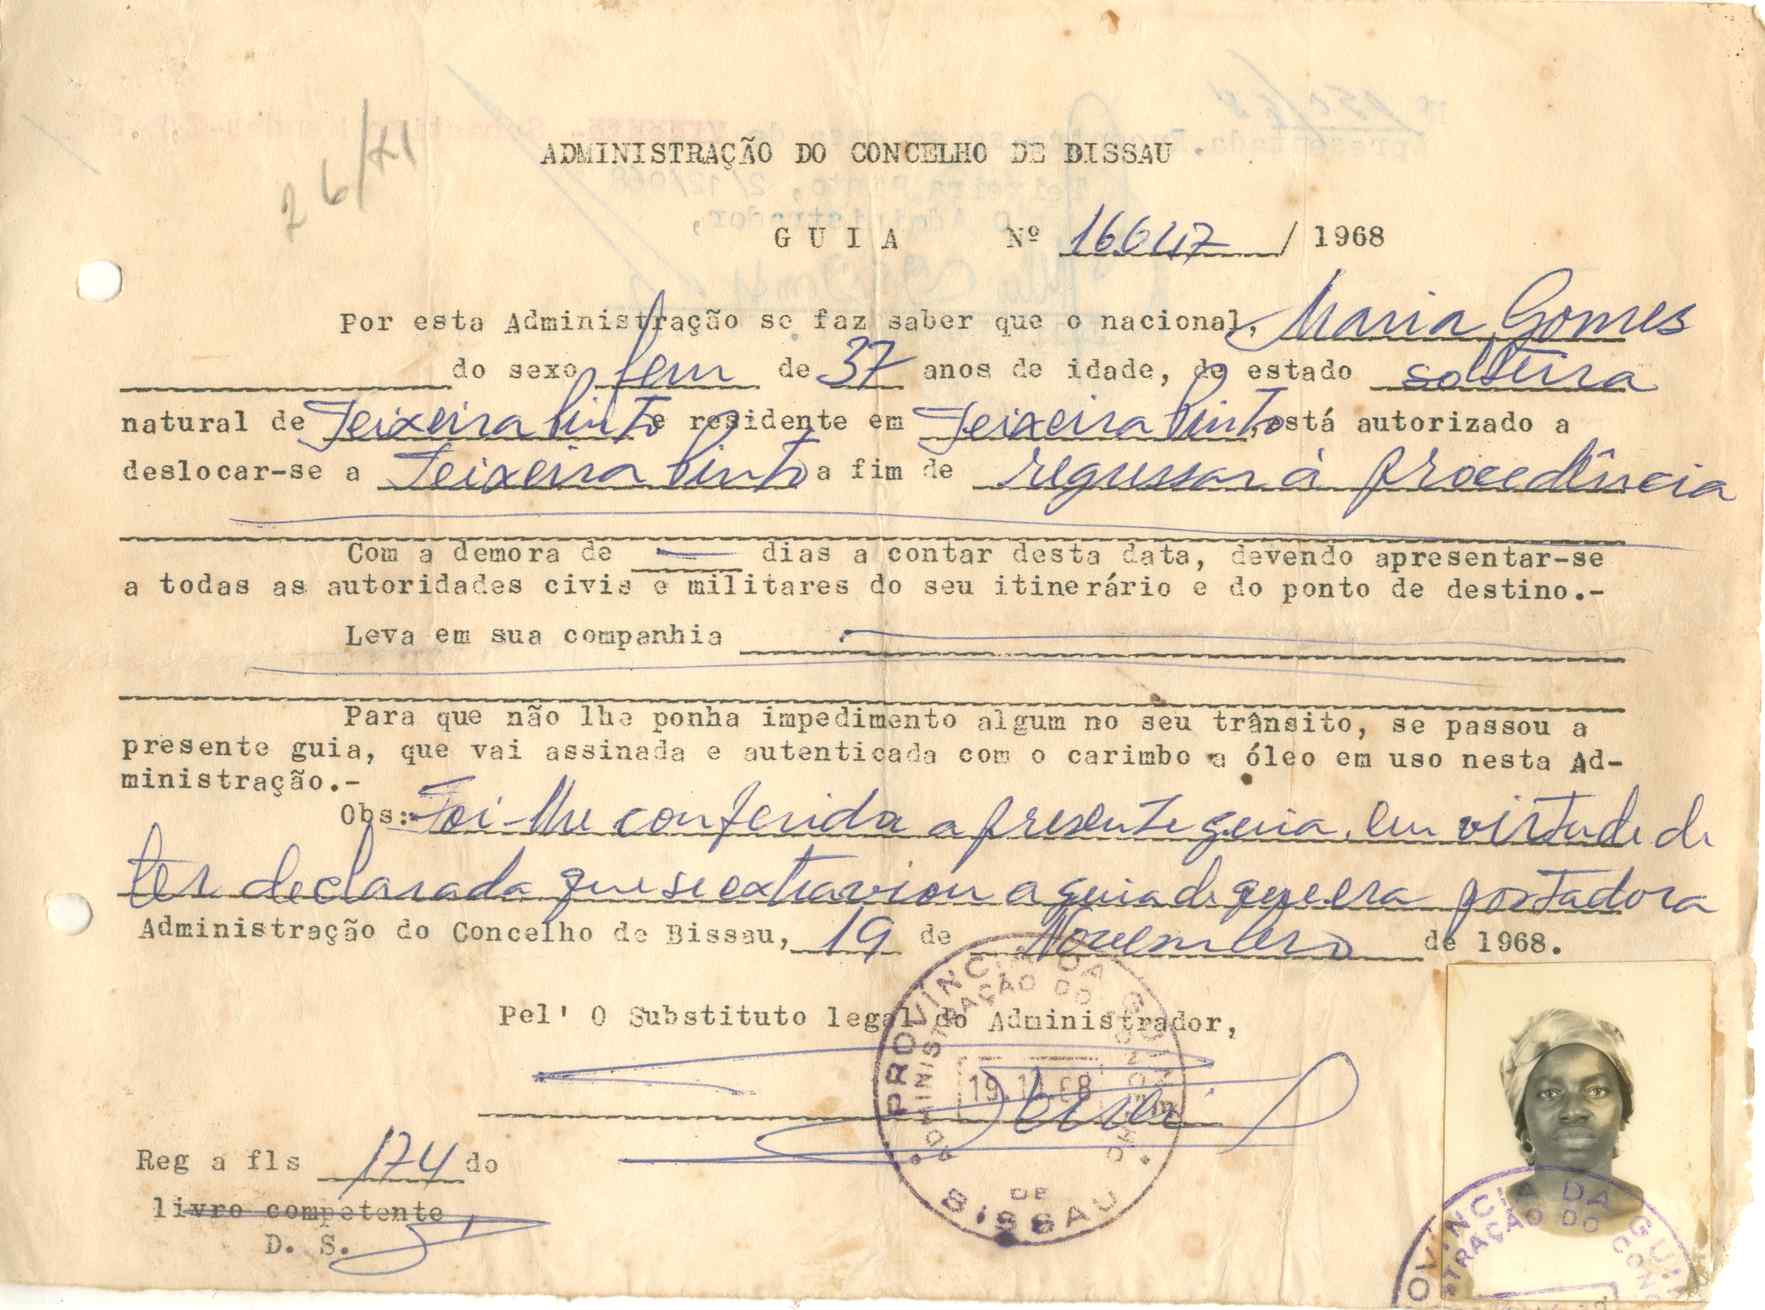 26/71
ADMINISTRAÇÃO DO CONCELHO DE BISSAU
GUIA Nº 16647 / 1968
Por esta Administração se faz saber que o nacional, Maria Gomes
do sexo fem de 37 anos de idade, de estado solteira
natural de Teixeira Pinto e residente em Teixeira Pinto, está autorizado a
deslocar-se a Teixeira Pinto a fim de regressar à procedência
Com a demora de — dias a contar desta data, devendo apresentar-se
a todas as autoridades civis e militares do seu itinerário e do ponto de destino.-
Leva em sua companhia
Para que não lhe ponha impedimento algum no seu trânsito, se passou a
presente guia, que vai assinada e autenticada com o carimbo a óleo em uso nesta Ad-
ministração.-
Obs:- Foi-lhe conferida a presente guia, em virtude de
ter declarada que se extraviou a guia de que era portadora
Administração do Concelho de Bissau, 19 de Novembro de 1968.
Pel' O Substituto legal do Administrador,
PROVÍNCIA DA GUINÉ
ADMINISTRAÇÃO DO CONCELHO
19.11.68
DE
BISSAU
Reg a fls 174 do
livro competente
D. S.